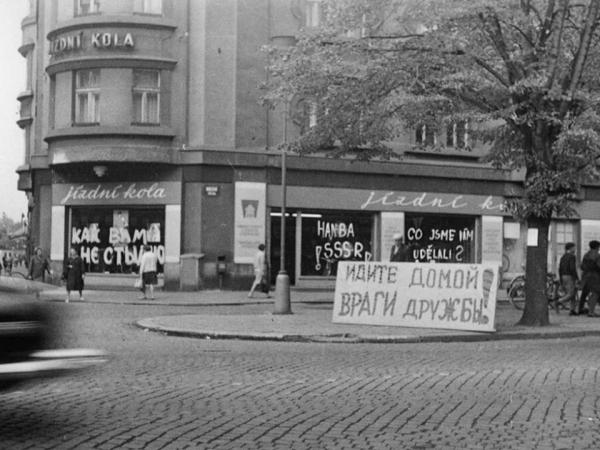 JÍZDNÍ KOLA
jízdní kola
jízdní k
КАК ВАМА
НЕ СТЫДНО
HANBA
! SSSR !
CO JSME JÍM
UDĚLALI ?
ИДИТЕ ДОМОЙ
ВРАГИ ДРУЖБЫ!